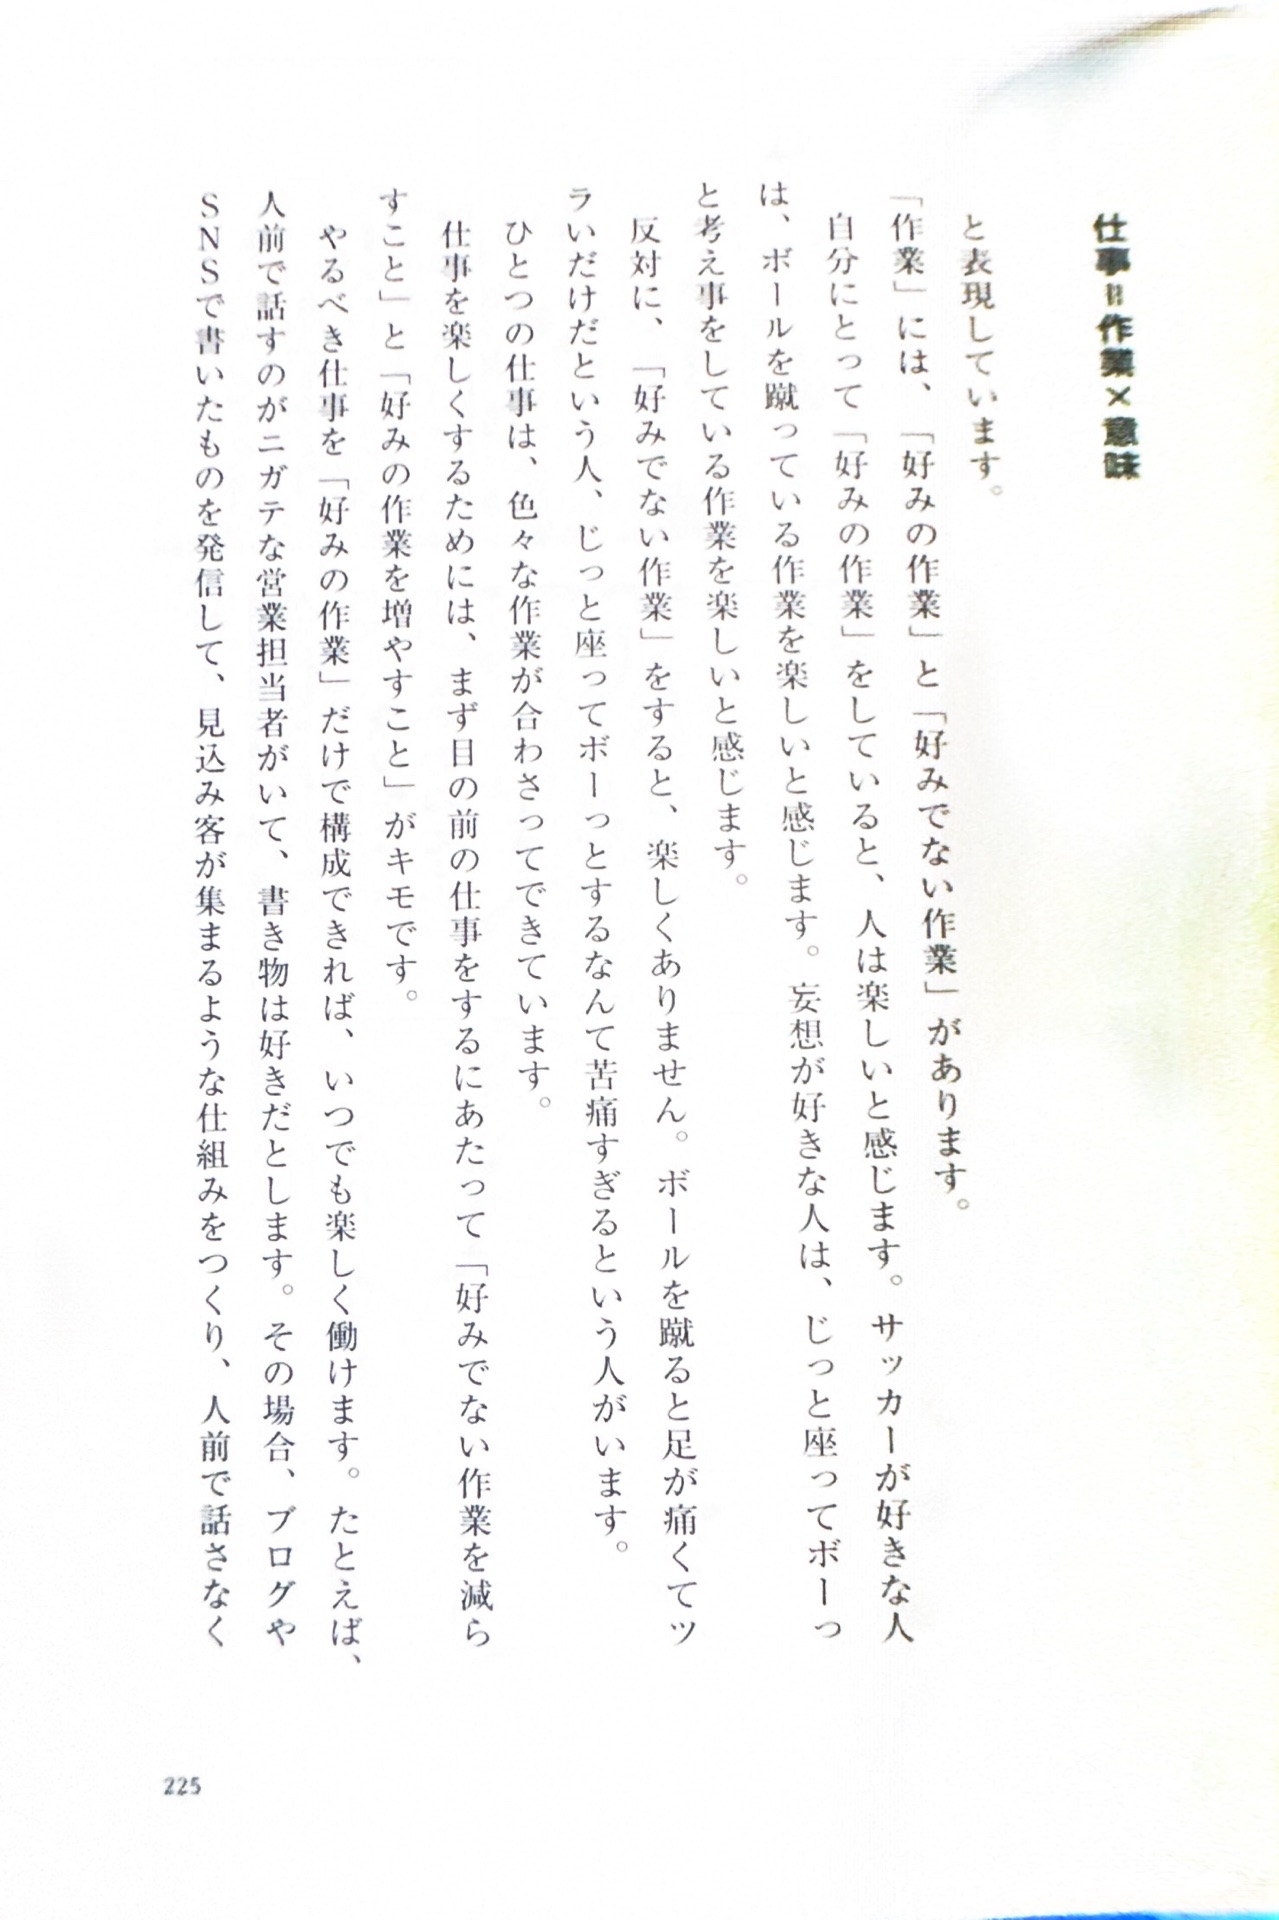 仕事＝作業×意味
と表現しています。
「作業」には、「好みの作業」と「好みでない作業」があります。
自分にとって「好みの作業」をしていると、人は楽しいと感じます。サッカーが好きな人
は、ボールを蹴っている作業を楽しいと感じます。妄想が好きな人は、じっと座ってボーっ
と考え事をしている作業を楽しいと感じます。
反対に、「好みでない作業」をすると、楽しくありません。ボールを蹴ると足が痛くてツ
ラいだけだという人、じっと座ってボーっとするなんて苦痛すぎるという人がいます。
ひとつの仕事は、色々な作業が合わさってできています。
仕事を楽しくするためには、まず目の前の仕事をするにあたって「好みでない作業を減ら
すこと」と「好みの作業を増やすこと」がキモです。
やるべき仕事を「好みの作業」だけで構成できれば、いつでも楽しく働けます。たとえば、
人前で話すのがニガテな営業担当者がいて、書き物は好きだとします。その場合、ブログや
SNSで書いたものを発信して、見込み客が集まるような仕組みをつくり、人前で話さなく
225